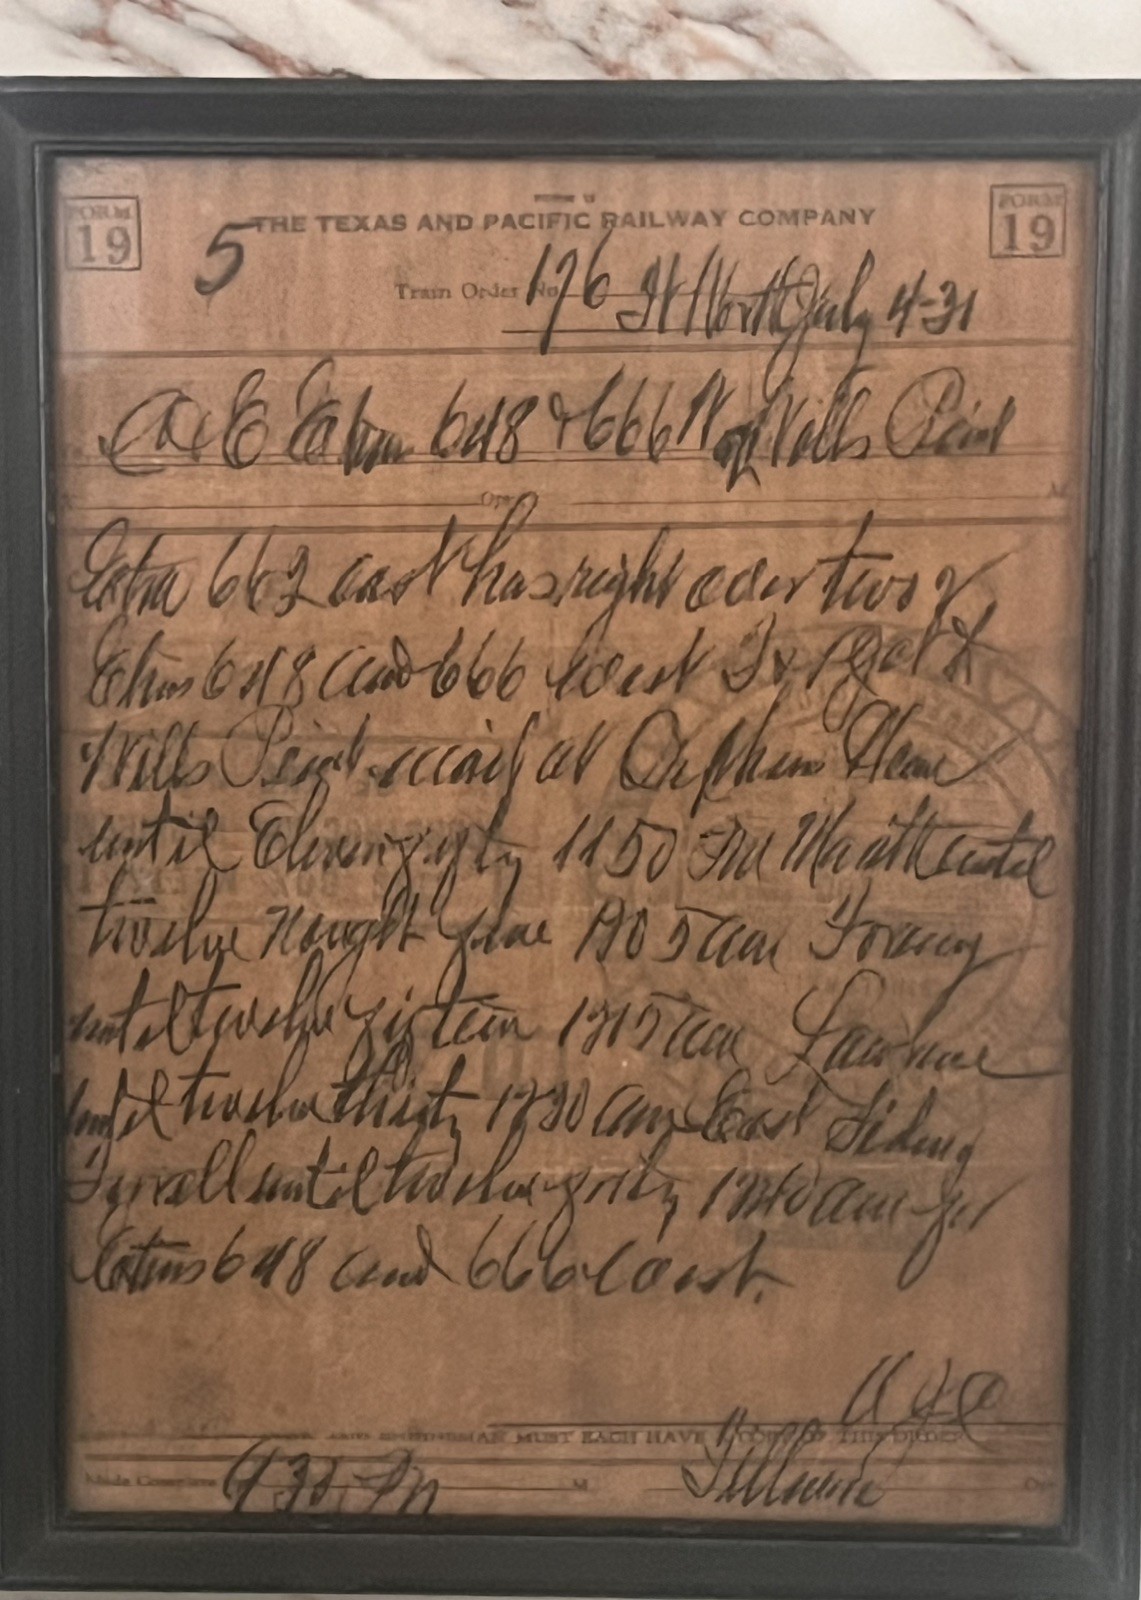 FORM 19
FORM 19
FORM 19
THE TEXAS AND PACIFIC RAILWAY COMPANY
5
Train Order No 176 Ft Worth July 4-31
C & E Extras 648 & 666 W of Wills Point
Opr M
Extra 662 east has right over two 2
Extras 648 and 666 west to
Wills Point wait at Orphans Home
until Eleven fifty 1150 PM until
twelve nought five 1205 am Forney
until twelve fifteen 1215 am Lawrence
until twelve thirty 1230 am East Siding
Terrell until twelve forty 1240 am for
Extras 648 and 666 west.
AND ENGINEMAN MUST EACH HAVE A COPY OF THIS ORDER
Made Complete 932 Pm M Opr